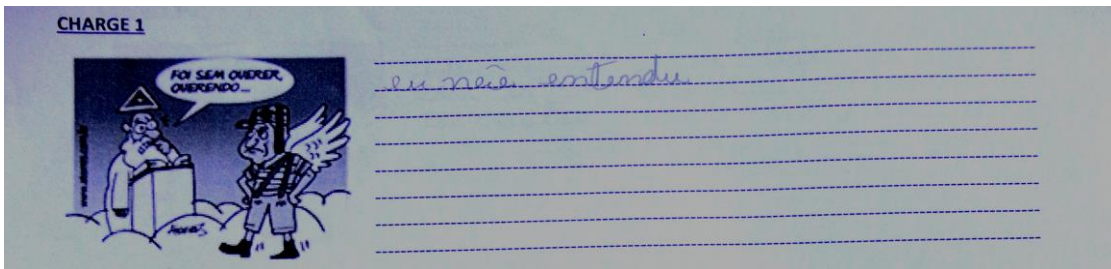 CHARGE 1
FOI SEM QUERER,
QUERENDO...
eu não entendu